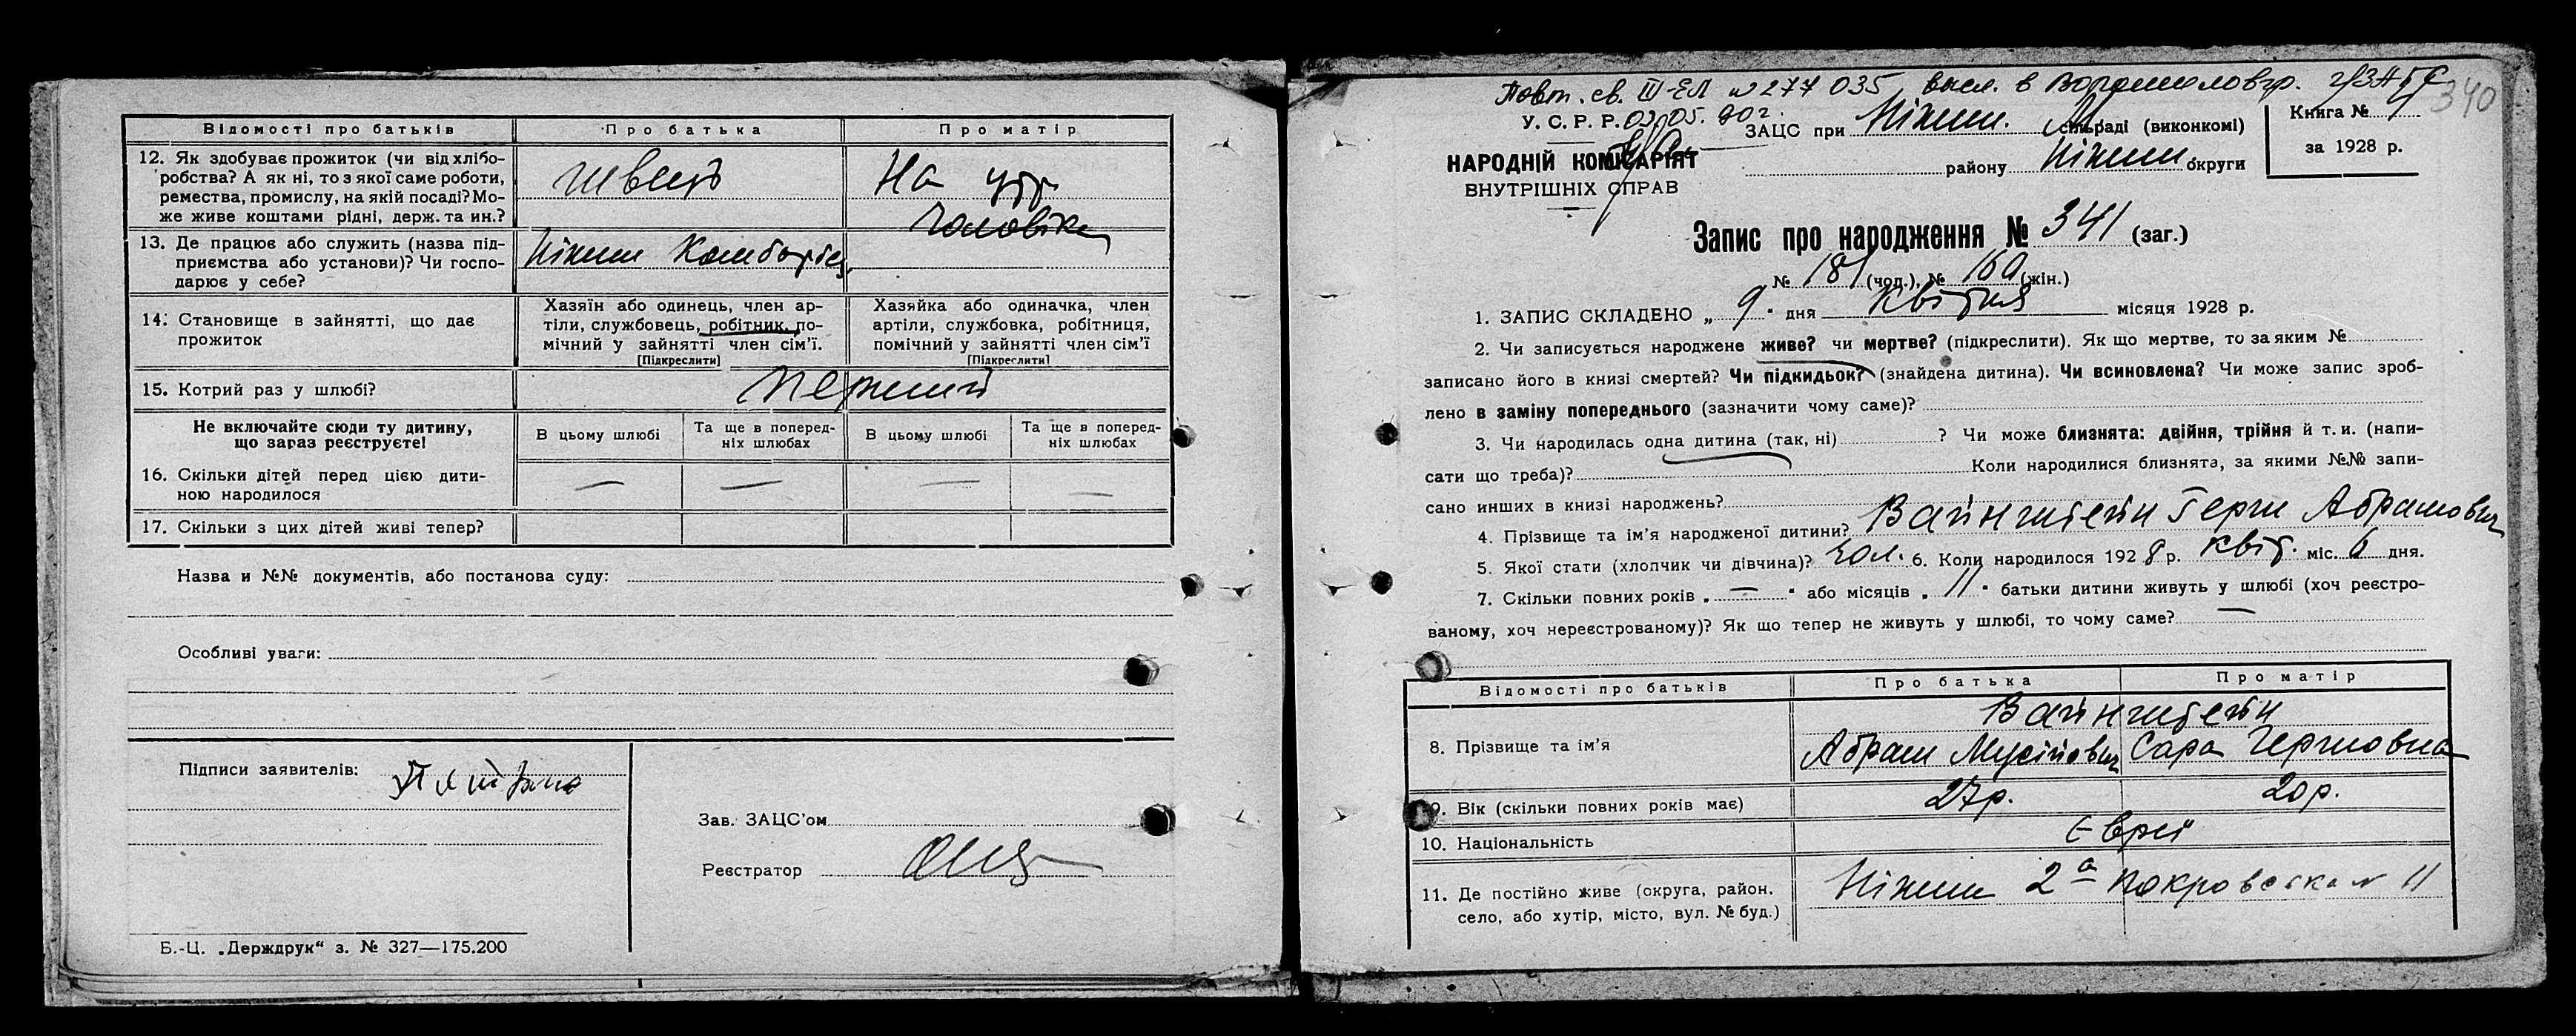 Відомості про батьків
Про батька
Про матір
12. Як здобуває прожиток (чи від хлібо-
робства? А як ні, то з якої саме роботи,
ремества, промислу, на якій посаді? Мо-
же живе коштами рідні, держ. та ин.?
швець
На утр.
чоловіка
13. Де працює або служить (назва під-
приємства або установи)? Чи госпо-
дарює у себе?
Ніжин
14. Становище в зайнятті, що дає
прожиток
Хазяїн або одинець, член ар-
тіли, службовець, робітник, по-
мічний у зайнятті член сім'ї.
[Підкреслити]
Хазяйка або одиначка, член
артіли, службовка, робітниця,
помічний у зайнятті член сім'ї
[Підкреслити]
15. Котрий раз у шлюбі?
перший
Не включайте сюди ту дитину,
що зараз реєструєте!
В цьому шлюбі
Та ще в поперед-
ніх шлюбах
В цьому шлюбі
Та ще в поперед-
ніх шлюбах
16. Скільки дітей перед цією дити-
ною народилося
— — — —
17. Скільки з цих дітей живі тепер?
Назва и №№ документів, або постанова суду:
Особливі уваги:
Підписи заявителів:
Зав. ЗАЦС'ом
Реєстратор
Б.-Ц. „Держдрук“ з. № 327—175.200
Повт. св. III-ЕЛ № 277035 высл. в Ворошиловгр.
340
У. С. Р. Р.
НАРОДНІЙ КОМІСАРІЯТ
ВНУТРІШНІХ СПРАВ
ЗАЦС при Ніжин. М. сільраді (виконкомі)
району Ніжин округи
Книга №
за 1928 р.
Запис про народження № 341 (заг.)
№ 181 (чол.), № 160 (жін.)
1. ЗАПИС СКЛАДЕНО „ 9 “ дня квітня місяця 1928 р.
2. Чи записується народжене живе? чи мертве? (підкреслити). Як що мертве, то за яким №
записано його в книзі смертей? Чи підкидьок? (знайдена дитина). Чи всиновлена? Чи може запис зроб-
лено в заміну попереднього (зазначити чому саме)?
3. Чи народилась одна дитина (так, ні) ? Чи може близнята: двійня, трійня й т. и. (напи-
сати що треба)? Коли народилися близнята, за якими №№ запи-
сано инших в книзі народжень?
4. Прізвище та ім'я народженої дитини? Вайнштейн Герш Абрамович
5. Якої стати (хлопчик чи дівчина)? чол. 6. Коли народилося 1928 р. квіт. міс. 6 дня.
7. Скільки повних років „ — “ або місяців „ 11 “ батьки дитини живуть у шлюбі (хоч реєстро-
ваному, хоч нереєстрованому)? Як що тепер не живуть у шлюбі, то чому саме? —
Відомості про батьків
Про батька
Про матір
8. Прізвище та ім'я
Вайнштейн
Абрам Мусійович
Сара Гершовна
9. Вік (скільки повних років має)
27 р.
20 р.
10. Національність
Євреї
11. Де постійно живе (округа, район,
село, або хутір, місто, вул. № буд.)
Ніжин 2а Покровська № 11